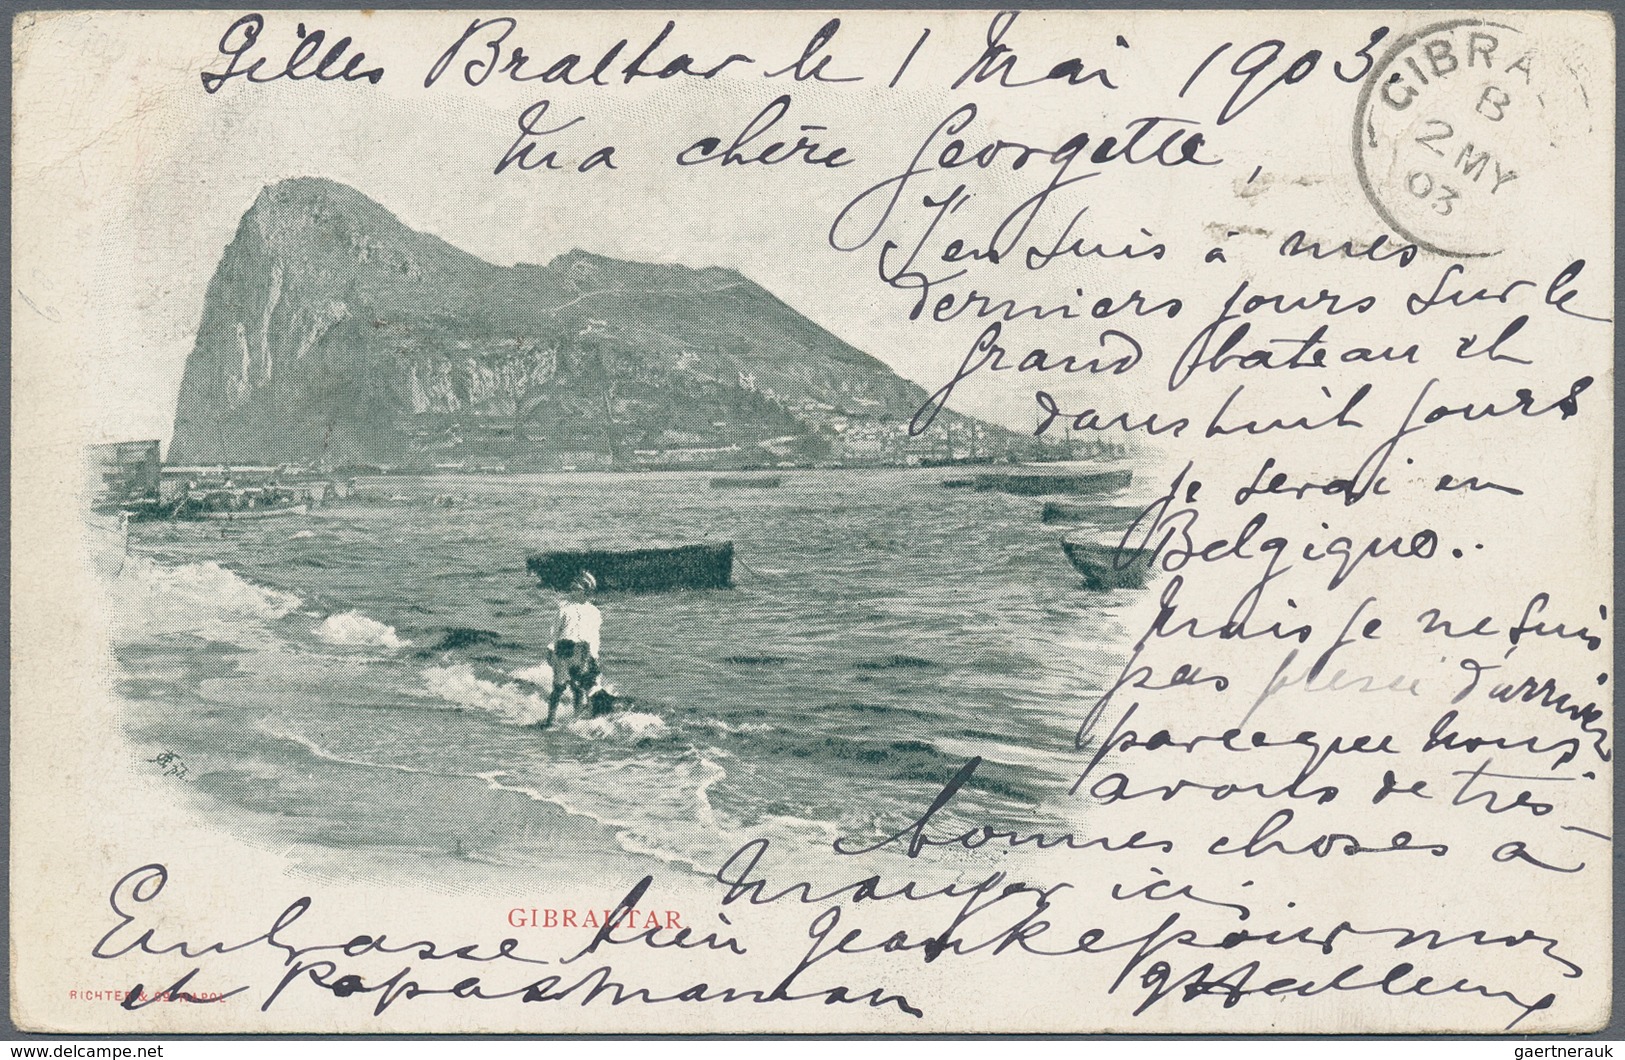 Gilles Braltar le 1 Mai 1903.
GIBRA
B
2 MY
03
Ma chère Georgette,
J'en suis à mes
derniers jours sur le
grand bateau et
dans huit jours
je serai en
Belgique..
Mais je ne suis
pas pressé d'arriver
parceque nous
avons de très
bonnes choses à
manger ici.
GIBRALTAR
Embrasse bien Jeanke pour moi
et Papa & maman
RICHTER & Co NAPOLI
delcampe.net
gaertnerauk